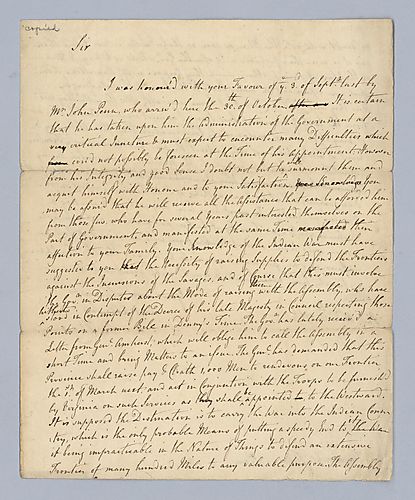 copied
Sir
I was honour'd with your Favour of ye 3d of Septr last by
Mr John Penn, who arriv'd here the 30th of October. It is certain
that he has taken upon him the Administration of the Government at a
very critical Juncture & must expect to encounter many Difficulties which
could not possibly be foreseen at the Time of his Appointment. However
from his Integrity and good Sense I doubt not but he'll surmount them and
acquit himself with Honour and to your Satisfaction. You
may be assured that he will receive all the Assistance that can be afforded him
from those few, who have for several Years past interested themselves on the
Part of Government, and manifested at the same Time their
affection to your Family. Your Knowledge of the Indian War must have
suggested to you the Necessity of raising Supplies to defend the Frontiers
against the Incursions of the Savages, and of Course that this must involve
the Govr in Disputes about the Mode of raising them with the Assembly, who have
in Contempt of the Decree of his late Majesty in Council respecting those
Points on a former Bill in Denny's Time. The Govr has lately receiv'd a
Letter from Genl Amherst, which will oblige him to call the Assembly in a
short Time and bring Matters to an Issue. The Genl has demanded that this
Province shall raise pay & Cloath 1000 Men to rendezvous on our Frontier
the 1st of March next and act in Conjunction with the Troops to be furnished
by Virginia on such Services as they shall be appointed to the Westward.
It is supposed the Destination is to carry the War into the Indian Coun-
try, which is the only probable Means of putting a speedy End to the War
it being impracticable in the Nature of Things to defend an extensive
Frontier of many hundred Miles to any valuable purpose. The Assembly